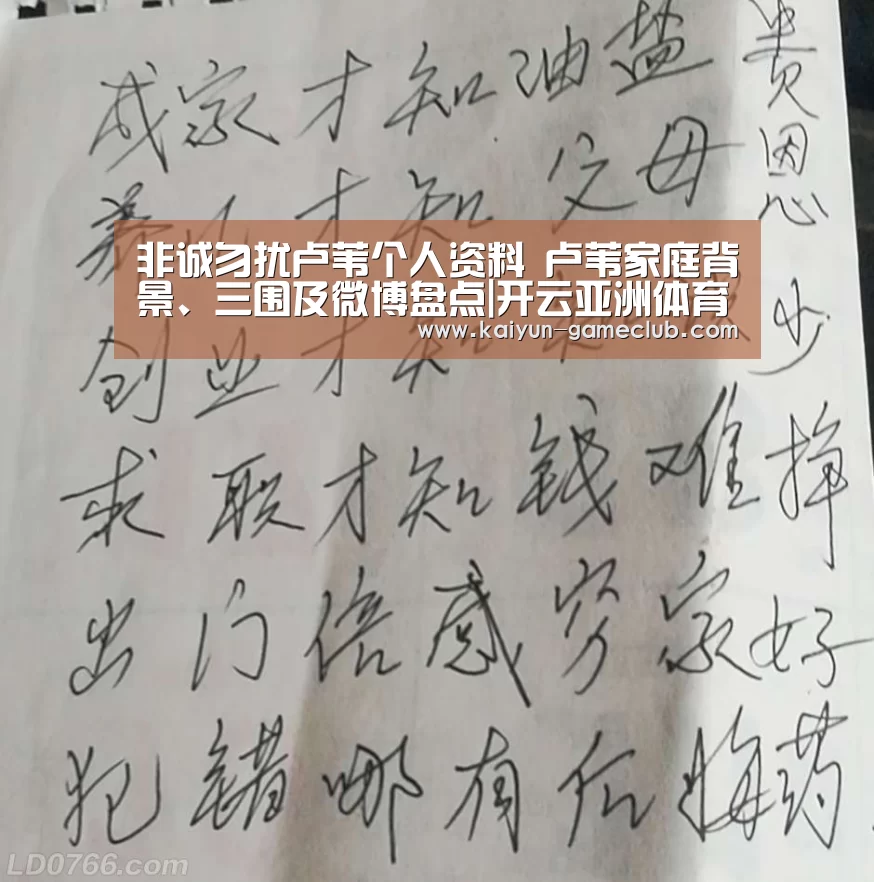 成家才知油盐贵
养儿才知父母恩
非诚勿扰卢苇个人资料 卢苇家庭背
景、三围及微博盘点|开云亚洲体育
www.kaiyun-gameclub.com
创业才知少
求职才知钱难挣
出门倍感穷家好
犯错哪有后悔药
LD0766.com